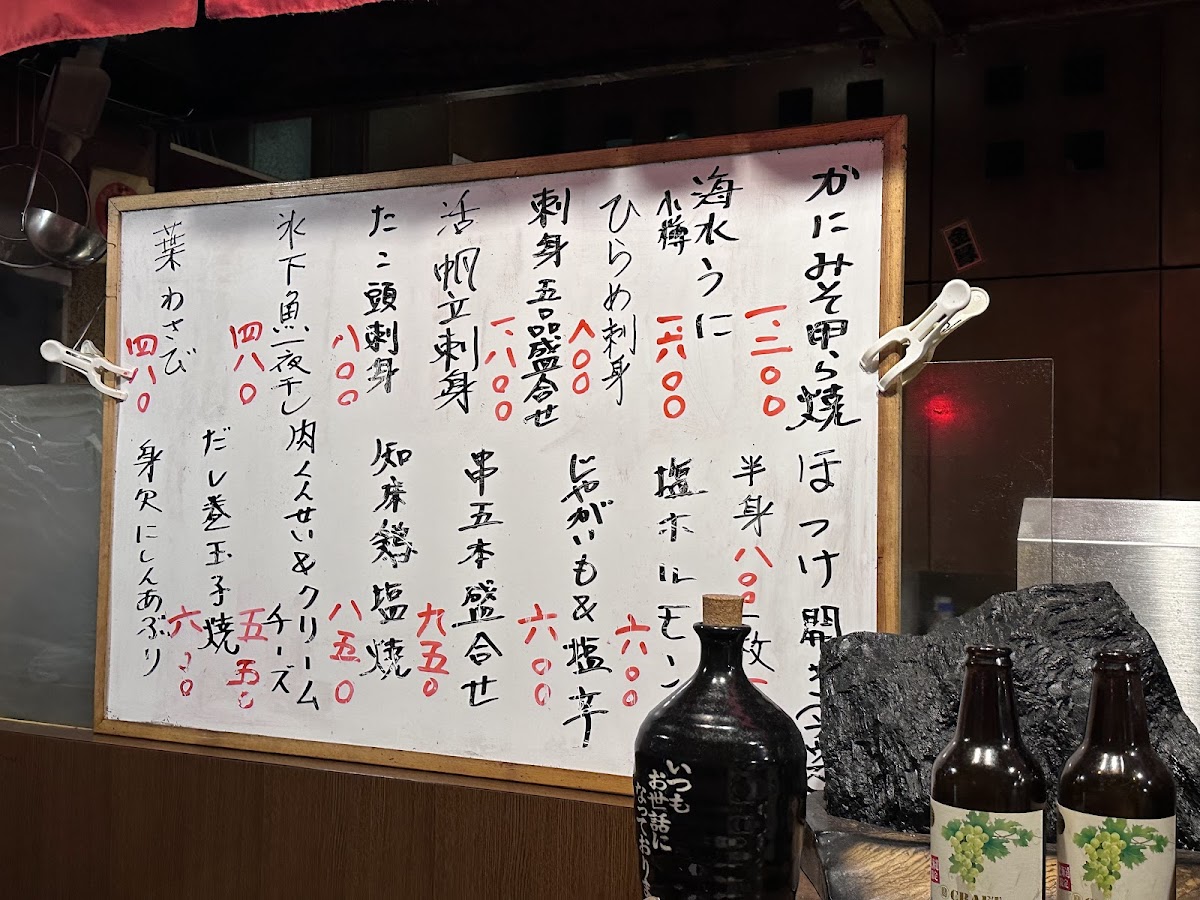 かにみそ甲ら焼
一、三〇〇
海水うに
小樽
一、六〇〇
ひらめ刺身
八〇〇
刺身五品盛合せ
一、八〇〇
活帆立刺身
たこ頭刺身
八〇〇
氷下魚一夜干し
四八〇
葉わさび
四八〇
ほっけ開き
半身 八〇〇
一枚
塩ホルモン
六〇〇
じゃがいも&塩辛
六〇〇
串五本盛合せ
九五〇
知床鶏塩焼
八五〇
肉くんせい&クリーム
チーズ
五五〇
だし巻玉子焼
六〇〇
身欠にしんあぶり
いつも
お世話に
なっており
CRAFT